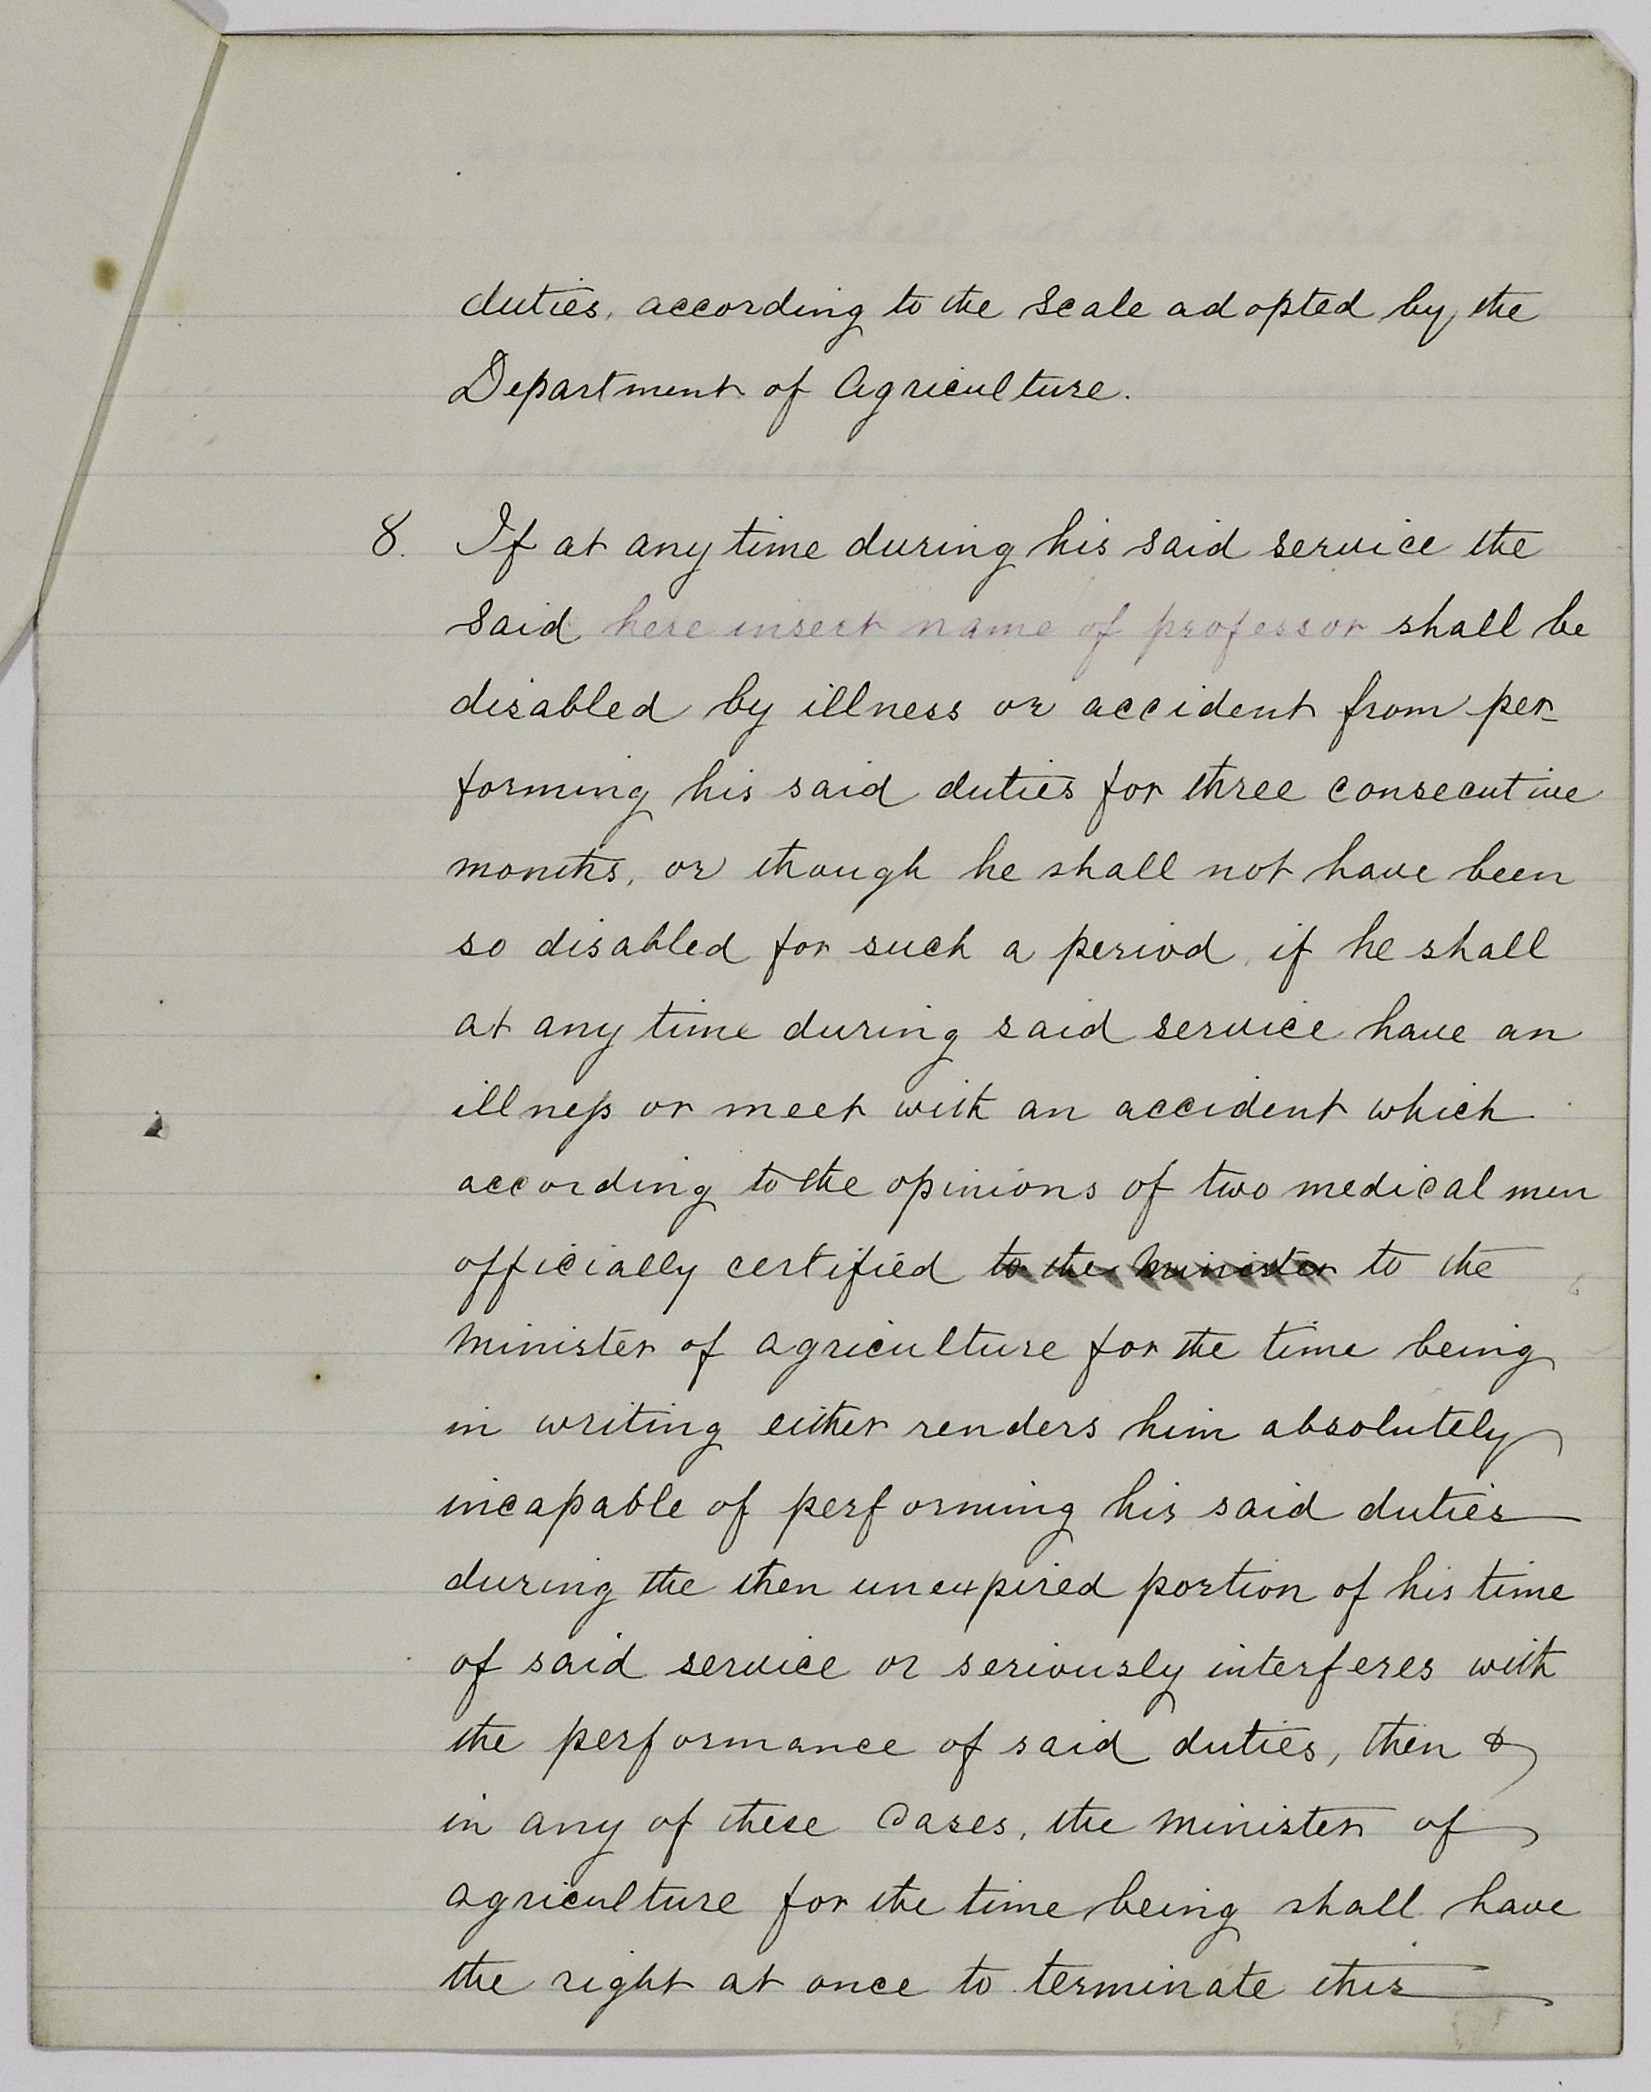 duties, according to the Scale adopted by the
Department of Agriculture.
8. If at any time during his said service the
said here insert name of professor shall be
disabled by illness or accident from per-
forming his said duties for three consecutive
months, or though he shall not have been
so disabled for such a period, if he shall
at any time during said service have an
illness or meet with an accident which
according to the opinions of two medical men
officially certified to the Minister to the
Minister of Agriculture for the time being
in writing either renders him absolutely
incapable of performing his said duties
during the then unexpired portion of his time
of said service or seriously interferes with
the performance of said duties, then &
in any of these Cases, the Minister of
Agriculture for the time being shall have
the right at once to terminate this